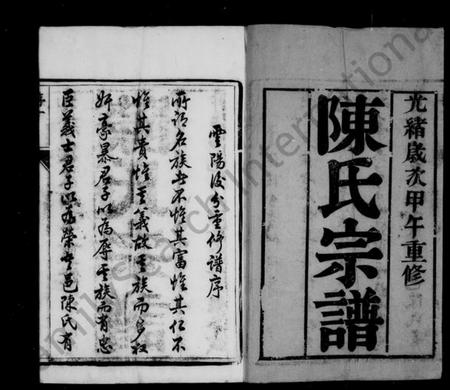 光緒歲次甲午重修
陳氏宗譜
雲陽後分重修譜序
所謂名族者不惟其富惟其仁不
惟其貴惟其義故其族而多權
奸豪暴君子以為辱其族而有忠
臣義士君子以為榮吾邑陳氏有
FamilySearch International